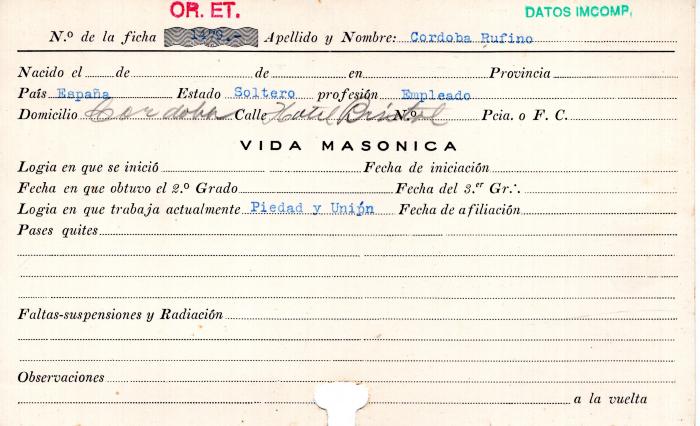 OR. ET.
DATOS IMCOMP,
N.º de la ficha 1479.- Apellido y Nombre: Cordoba Rufino
Nacido el de de en Provincia
País España Estado Soltero profesión Empleado
Domicilio Cordoba Calle Hotel Bristol N.º Pcia. o F. C.
VIDA MASONICA
Logia en que se inició Fecha de iniciación
Fecha en que obtuvo el 2.º Grado Fecha del 3.er Gr∴
Logia en que trabaja actualmente Piedad y Unión Fecha de afiliación
Pases quites
Faltas-suspensiones y Radiación
Observaciones
a la vuelta